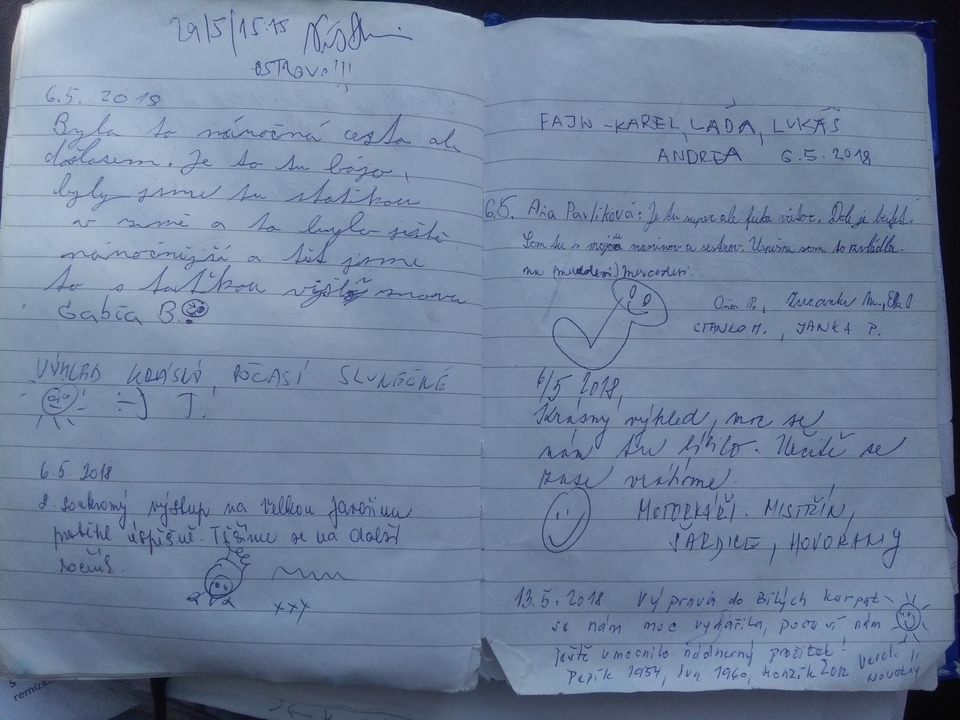 29/5/15:15
OSTROVO!!!
6.5. 2018
Byla to náročná cesta ale
dolasem. Je to tu bájo,
byly jsme tu s taťkou
v zimě a to bylo ještě
náročnější a teď jsme
to s taťkou vyšly znova
Gabča B.
VÝHLED KRÁSNÝ, POČASÍ SLUNEČNÉ
:-) J.
6.5. 2018
2. soukromý výstup na Velkou Javořinu
proběhl úspěšně. Těšíme se na další
ročník.
xxy
FAJN - KAREL, LÁĎA, LUKÁŠ
ANDREA 6.5.2018
6.5. Aňa Pavlíková: Je tu super ale fuka vietor. Dole je bufet.
Som tu s mojou maminov a sestrov. Uprimne som to zvládla
na (mercedesi) mercedesi.
P., Zuzanka M., Ella P
STANKO M., JANKA P.
6/5 2018,
Krásný výhled, moc se
nám tu líbilo. Určitě se
zase vrátíme.
MOTORKÁŘI. MISTŘÍN,
ŠARDICE, HOVORANY
13.5.2018 Výprava do Bílých Karpat
se nám moc vydařila, počasí nám
ještě umocnilo nádherný prožitek!
Pepík 1954, Iva 1960, Honzík 2012
Novotný
remízk